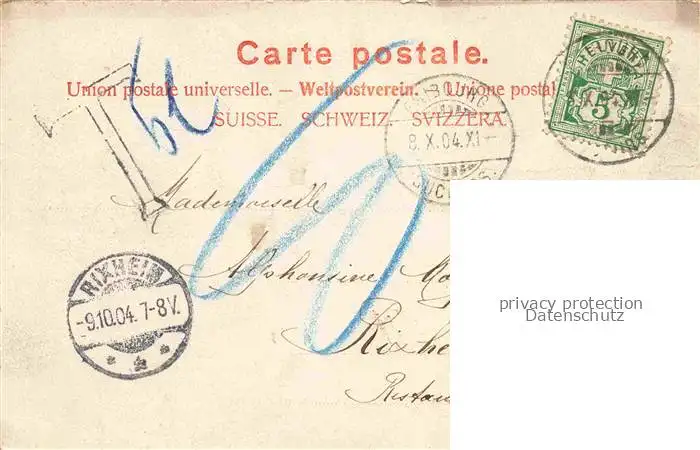 Carte postale.
Union postale universelle. — Weltpostverein. — Unione postal
SUISSE. SCHWEIZ. SVIZZERA.
T
5
8.X.04.XI
Mademoiselle
Alphonsine
RIXHEIM
-9.10.04. 7-8V.
Rixhe
Restau
privacy protection
Datenschutz